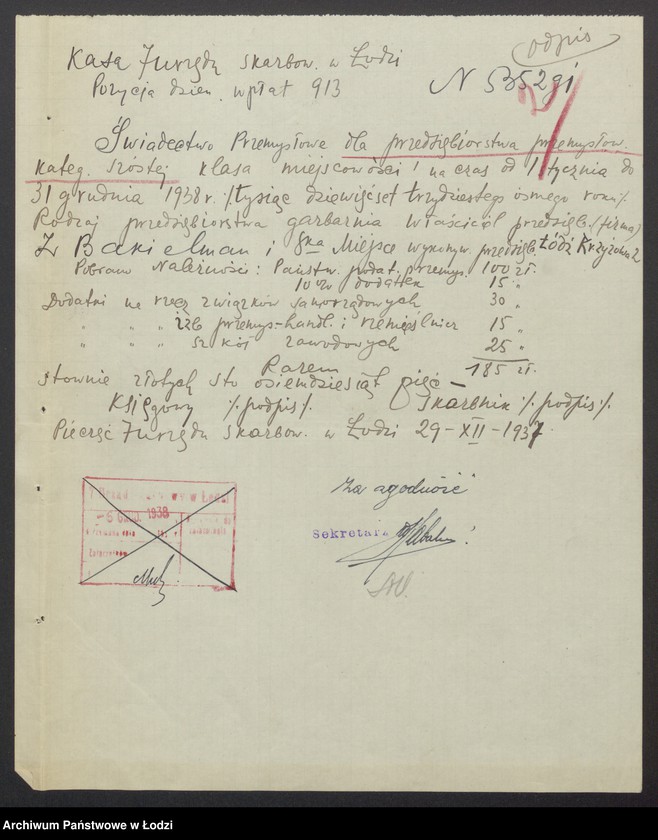 odpis
Kasa 7 urzędu skarbow. w Łodzi
Pozycja dzien. wpłat 913 N 5352gi
Świadectwo Przemysłowe dla przedsiębiorstwa przemysłow.
kateg. szóstej klasa miejscowości I na czas od 1 stycznia do
31 grudnia 1938 r. /.tysiąc dziewięćset trzydziestego ósmego roku/.
Rodzaj przedsiębiorstwa garbarnia właściciel przedsięb. (firma)
Z. Bakielman i Ska Miejsce wykonyw. przedsięb. Łódź Krzyżowa 2
Pobrano Należności: Państw. podat. przemys. 100 zł.
10% dodatek 15 "
Dodatki na rzecz związków samorządowych 30 "
" " " izb przemys-handl. i rzemieślnicz 15 "
" " " szkół zawodowych 25 "
Razem 185 zł.
słownie złotych sto osiemdziesiąt pięć —
Księgowy /.podpis/. Skarbnik /.podpis/.
Pieczęć 7 urzędu skarbow. w Łodzi 29-XII-1937
Za zgodność
Sekretarz
w Łodzi
-6 1938
Archiwum Państwowe w Łodzi